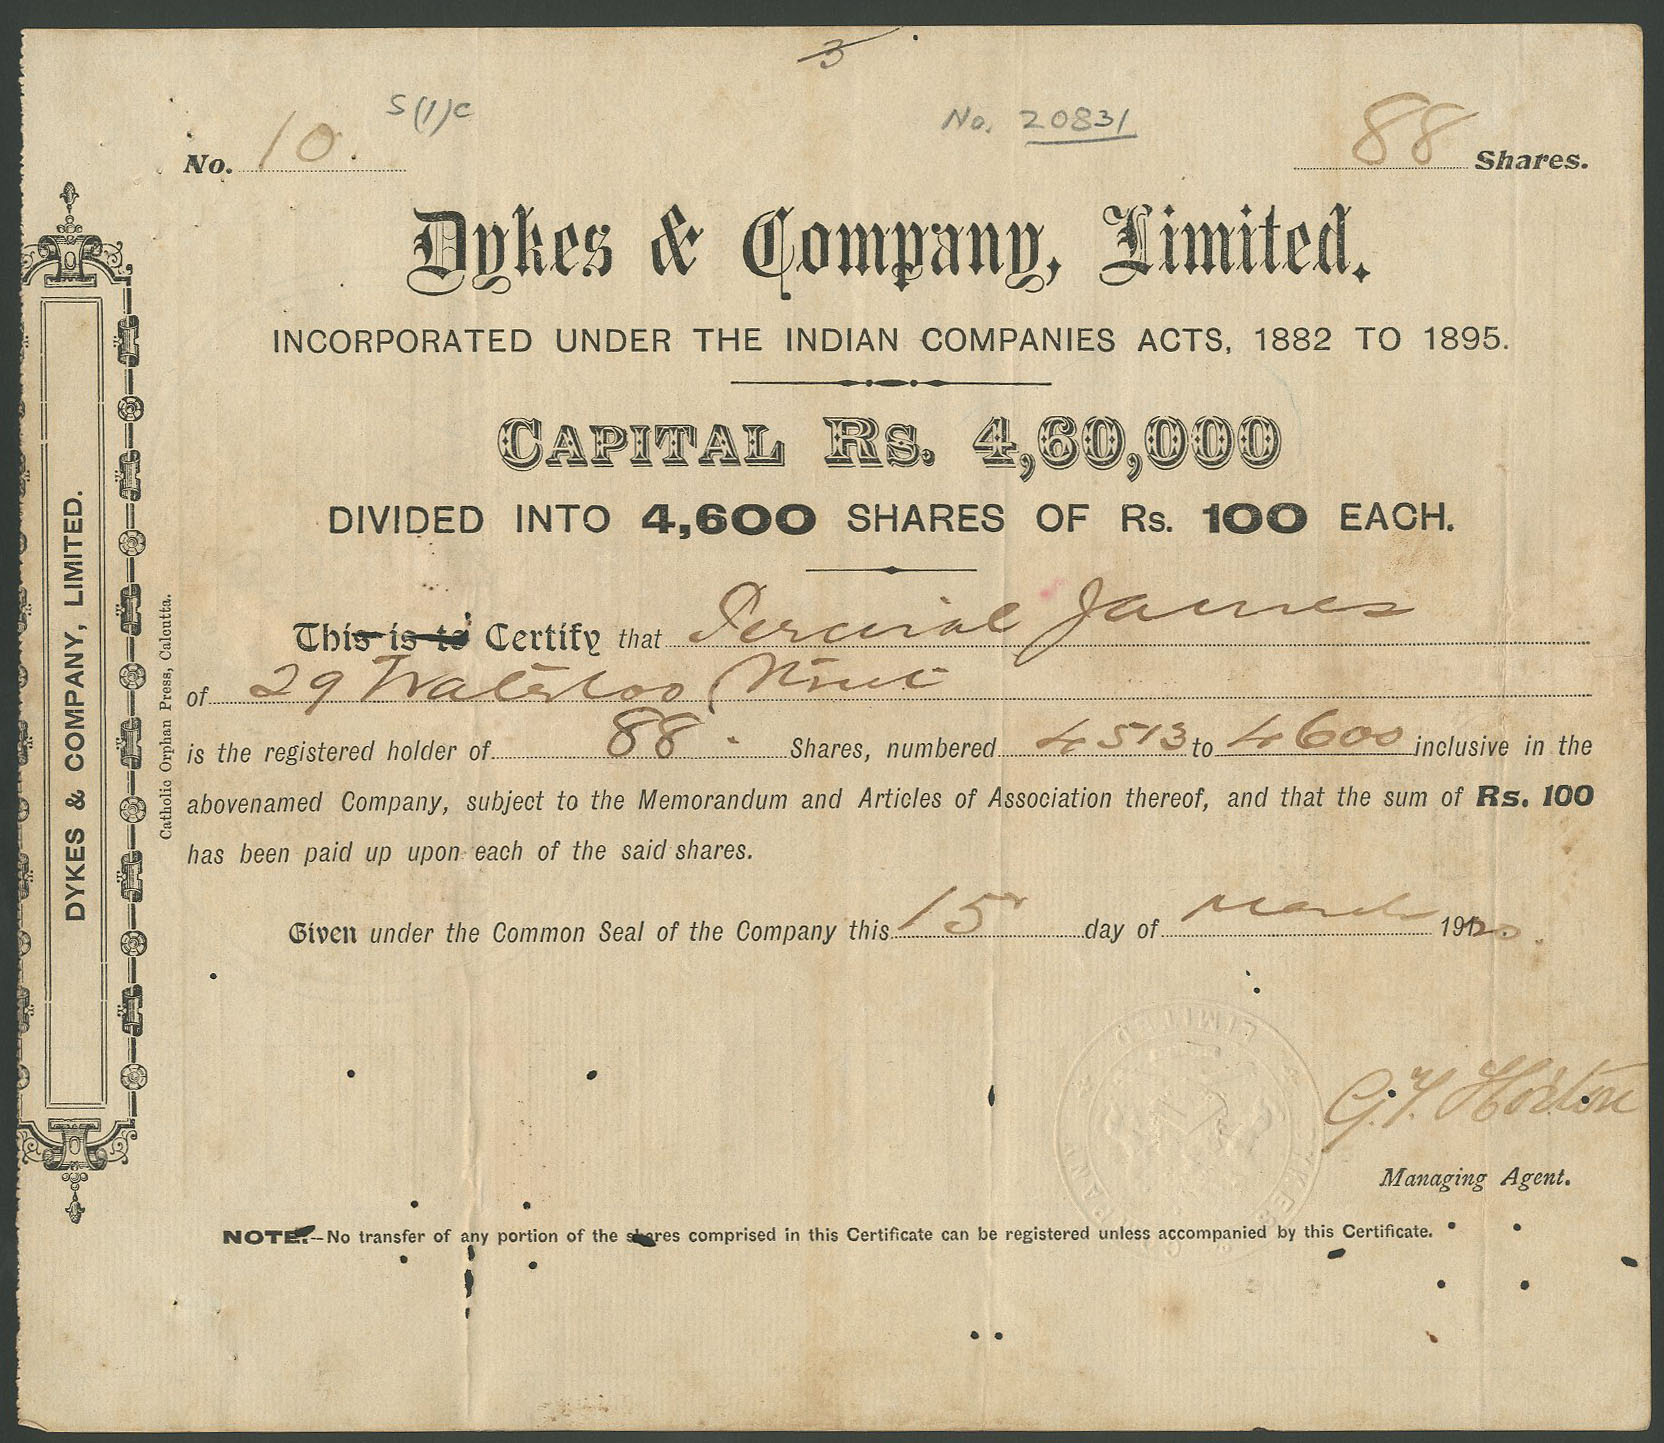 3
S(1)C
No. 20831
No. 10. 88 Shares.
Dykes & Company, Limited.
INCORPORATED UNDER THE INDIAN COMPANIES ACTS, 1882 TO 1895.
CAPITAL RS. 4,60,000
DIVIDED INTO 4,600 SHARES OF Rs. 100 EACH.
This is to Certify that Percival James
of 29 Waterloo Street
is the registered holder of 88 Shares, numbered 4513 to 4600 inclusive in the
abovenamed Company, subject to the Memorandum and Articles of Association thereof, and that the sum of Rs. 100
has been paid up upon each of the said shares.
Given under the Common Seal of the Company this 15 day of March 19
G. Y. Horton
Managing Agent.
NOTE.—No transfer of any portion of the shares comprised in this Certificate can be registered unless accompanied by this Certificate.
DYKES & COMPANY, LIMITED.
Catholic Orphan Press, Calcutta.
LIMITED